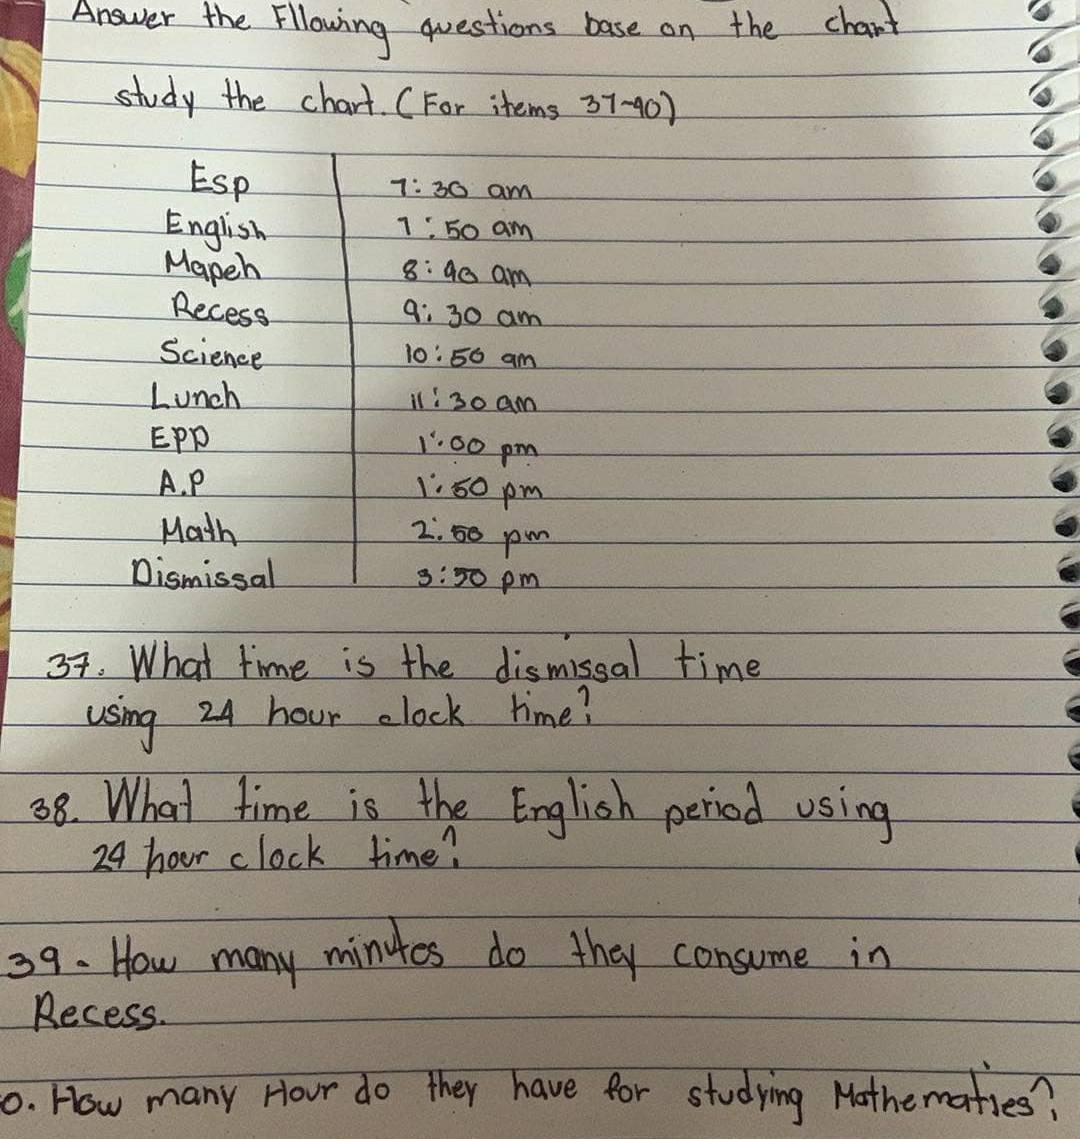 Answer the Fllowing questions base on the chart
study the chart. (For items 37-40)
Esp 7:30 am
English 7:50 am
Mapeh 8:40 am
Recess 9:30 am
Science 10:50 am
Lunch 11:30 am
EPP 1:00 pm
A.P 1:50 pm
Math 2:50 pm
Dismissal 3:50 pm
37. What time is the dismissal time
using 24 hour clock time?
38. What time is the English period using
24 hour clock time?
39. How many minutes do they consume in
Recess.
0. How many Hour do they have for studying Mathematies?